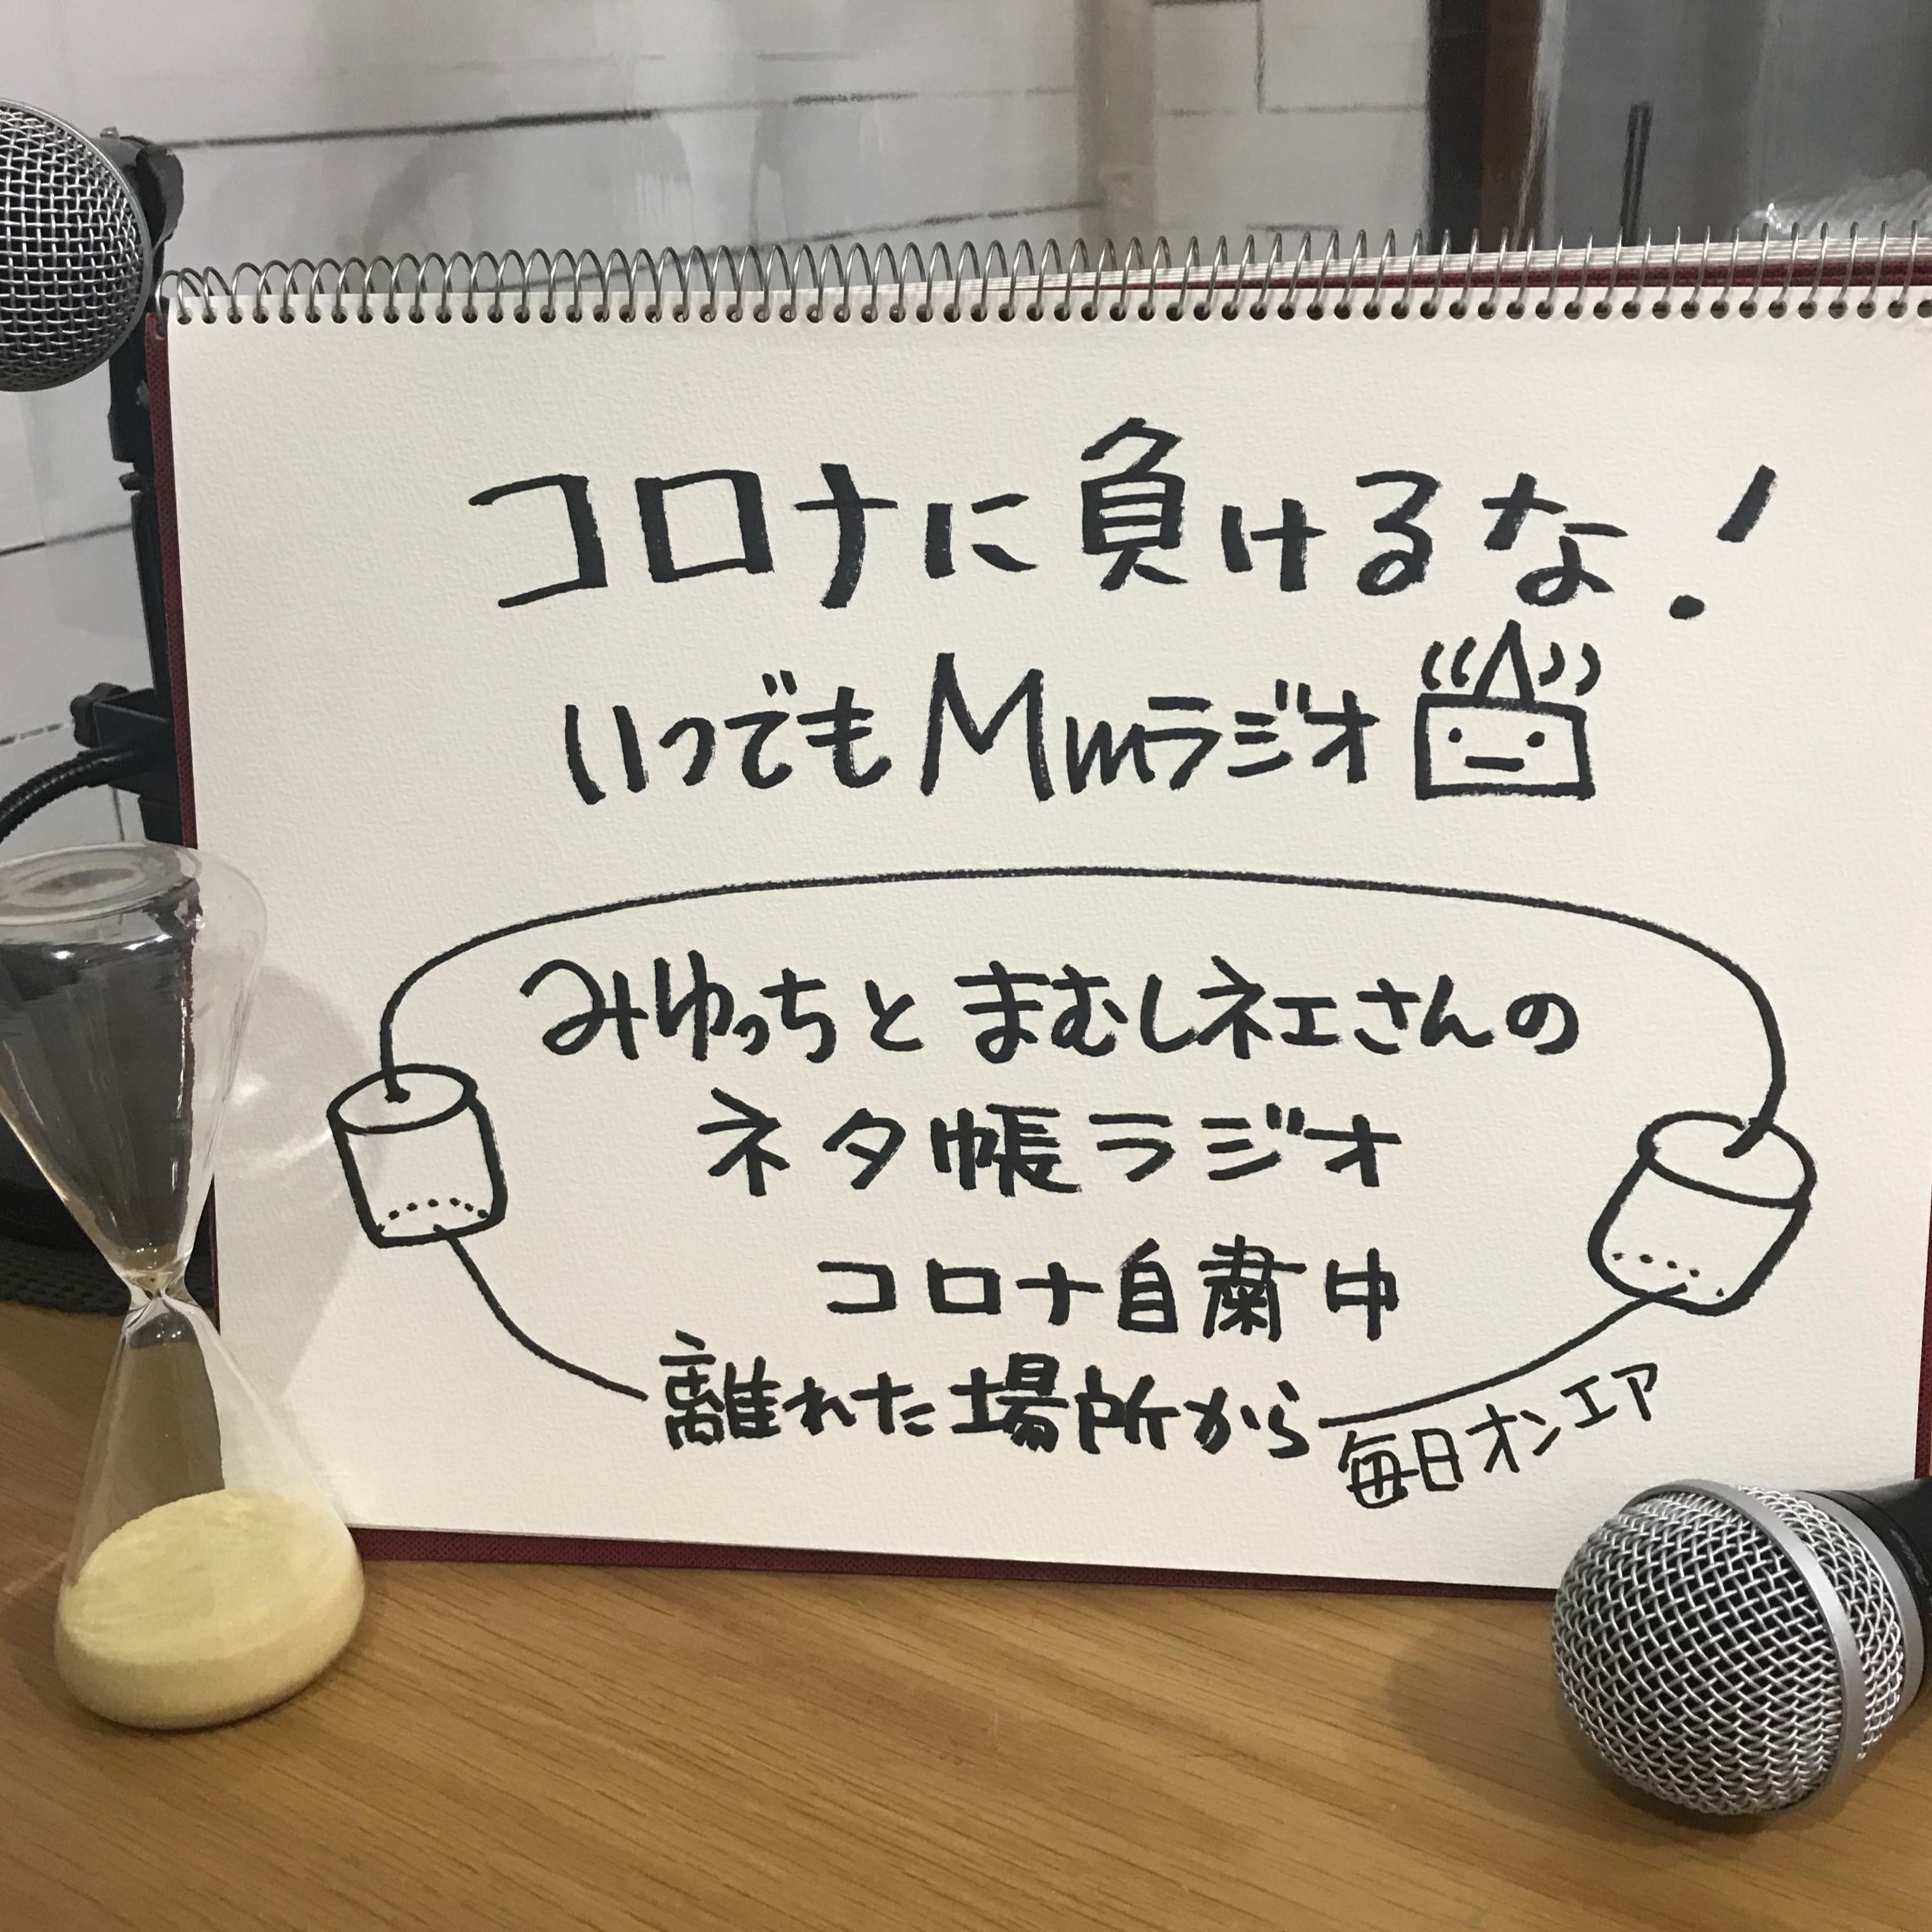 コロナに負けるな!
いつでもMmラジオ
みゆっちとまむしネエさんの
ネタ帳ラジオ
コロナ自粛中
離れた場所から
毎日オンエア